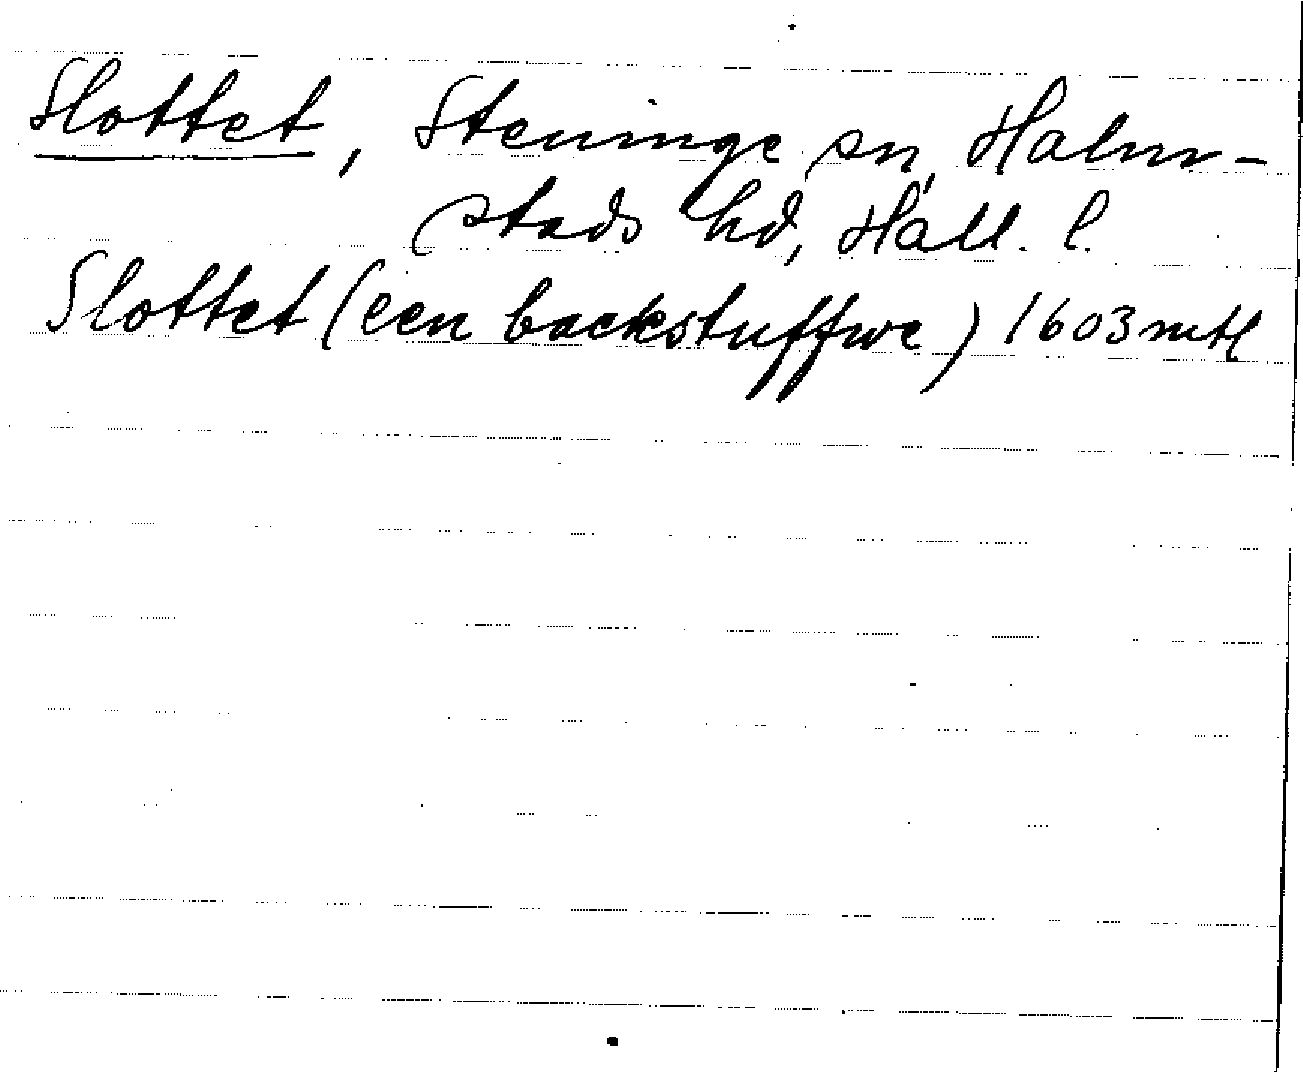 Slottet, Steninge sn, Halm-
stads hd, Hall. l.
Slottet (een backstuffwe) 1603 mtl